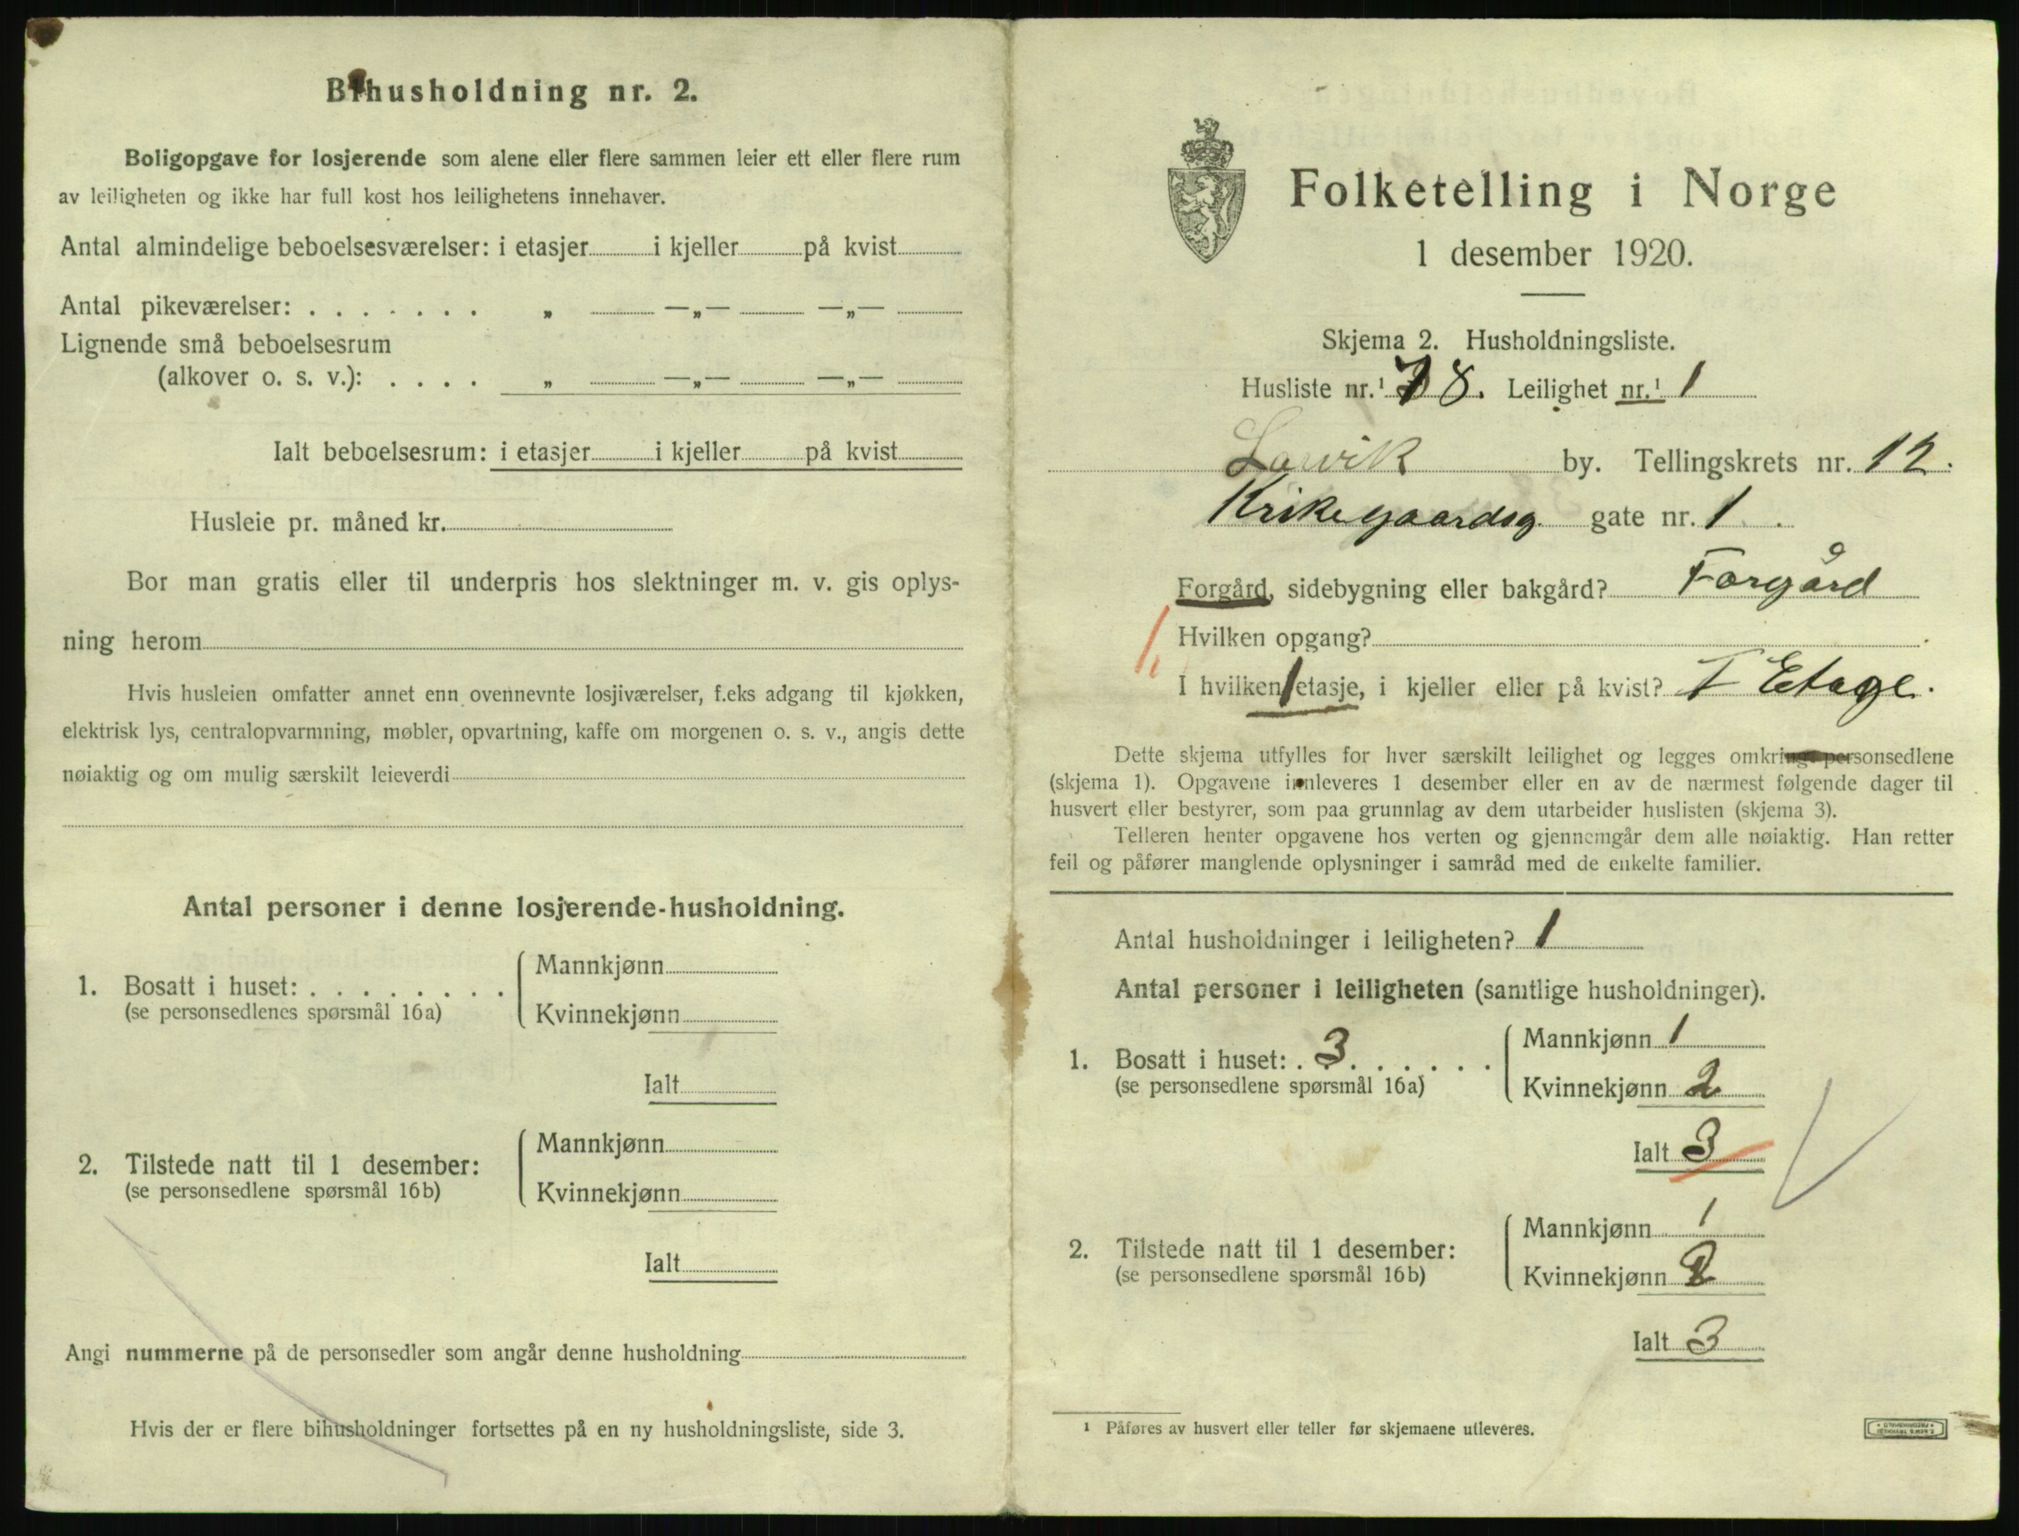 Bihusholdning nr. 2.
Boligopgave for losjerende som alene eller flere sammen leier ett eller flere rum
av leiligheten og ikke har full kost hos leilighetens innehaver.
Antal almindelige beboelsesværelser: i etasjer i kjeller på kvist
Antal pikeværelser: . . . . . . . „ —„— —„—
Lignende små beboelsesrum
(alkover o. s. v.): . . . . „ —„— —„—
Ialt beboelsesrum: i etasjer i kjeller på kvist
Husleie pr. måned kr.
Bor man gratis eller til underpris hos slektninger m. v. gis oplys-
ning herom
Hvis husleien omfatter annet enn ovennevnte losjiværelser, f.eks adgang til kjøkken,
elektrisk lys, centralopvarmning, møbler, opvartning, kaffe om morgenen o. s. v., angis dette
nøiaktig og om mulig særskilt leieverdi
Antal personer i denne losjerende-husholdning.
1. Bosatt i huset: . . . . . . . . Mannkjønn
(se personsedlenes spørsmål 16a) Kvinnekjønn
Ialt
2. Tilstede natt til 1 desember: Mannkjønn
(se personsedlene spørsmål 16b) Kvinnekjønn
Ialt
Angi nummerne på de personsedler som angår denne husholdning
Hvis der er flere bihusholdninger fortsettes på en ny husholdningsliste, side 3.
Folketelling i Norge
1 desember 1920.
Skjema 2. Husholdningsliste.
Husliste nr.¹ 78. Leilighet nr.¹ 1
Larvik by. Tellingskrets nr. 12.
Krikegaardsg gate nr. 1.
Forgård, sidebygning eller bakgård? Forgård
Hvilken opgang?
I hvilken 1 etasje, i kjeller eller på kvist? I Etage.
Dette skjema utfylles for hver særskilt leilighet og legges omkring personsedlene
(skjema 1). Opgavene innleveres 1 desember eller en av de nærmest følgende dager til
husvert eller bestyrer, som paa grunnlag av dem utarbeider huslisten (skjema 3).
Telleren henter opgavene hos verten og gjennemgår dem alle nøiaktig. Han retter
feil og påfører manglende oplysninger i samråd med de enkelte familier.
Antal husholdninger i leiligheten? 1
Antal personer i leiligheten (samtlige husholdninger).
1. Bosatt i huset: . 3 . . . . . . Mannkjønn 1
(se personsedlene spørsmål 16a) Kvinnekjønn 2
Ialt 3
2. Tilstede natt til 1 desember: Mannkjønn 1
(se personsedlene spørsmål 16b) Kvinnekjønn 2
Ialt 3
¹ Påføres av husvert eller teller før skjemaene utleveres.